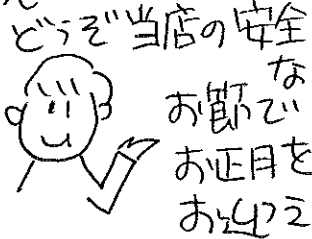 どうぞ当店の安全
な
お節で
お正月を
お迎え